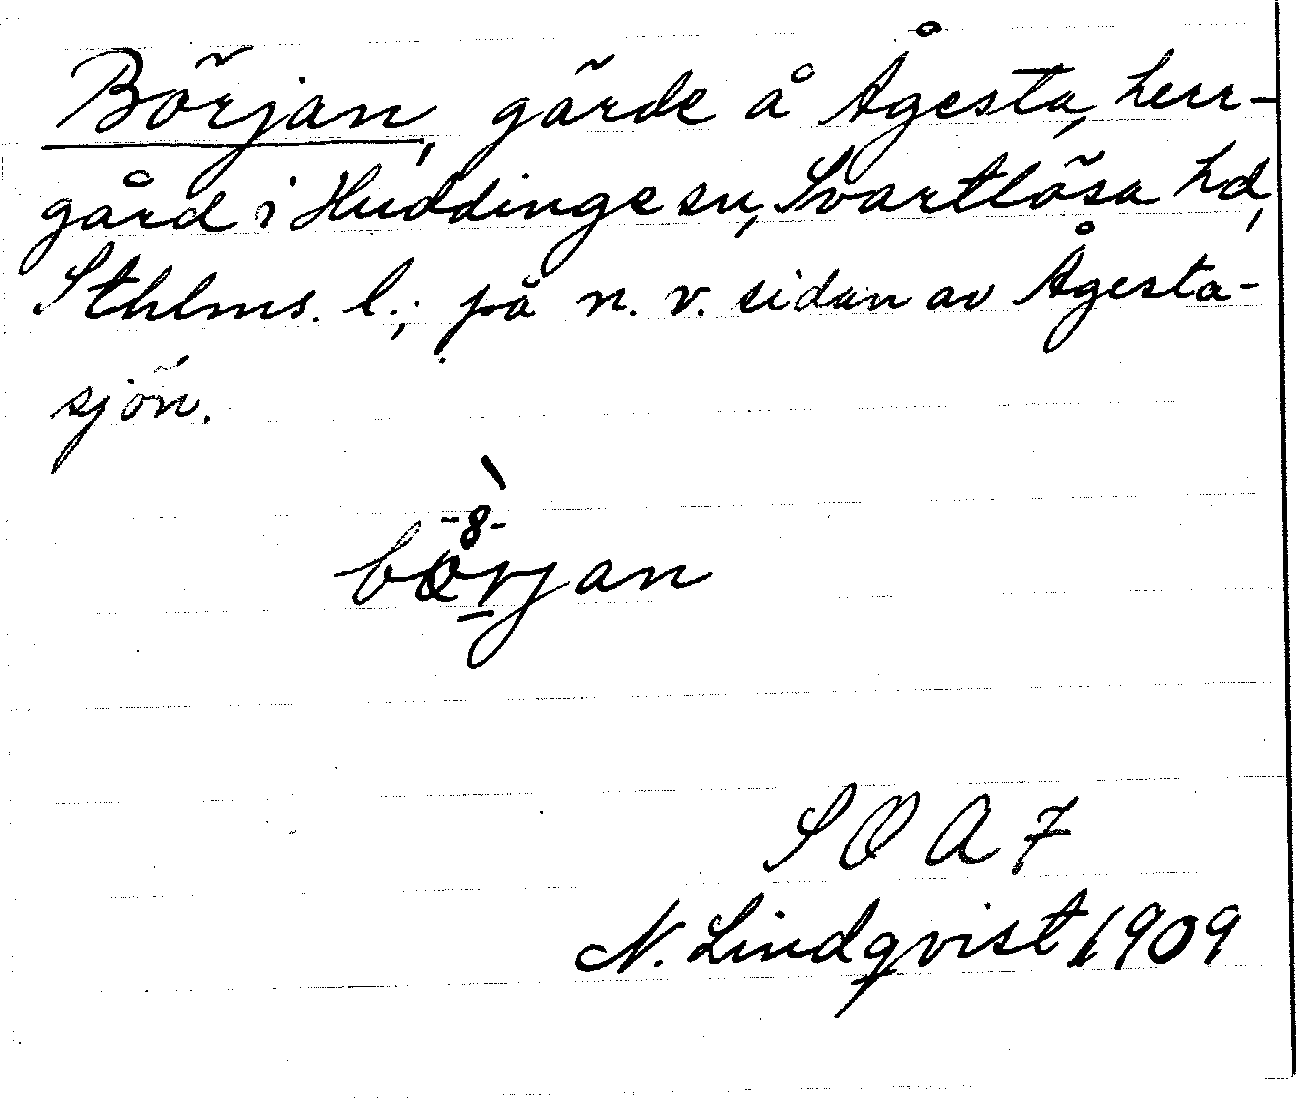 Början, gärde å Ågesta, herr-
gård i Huddinge sn, Svartlösa hd,
Sthlms. l.; på n. v. sidan av Ågesta-
sjön.
-8-
början
S O A 7
N. Lindqvist 1909